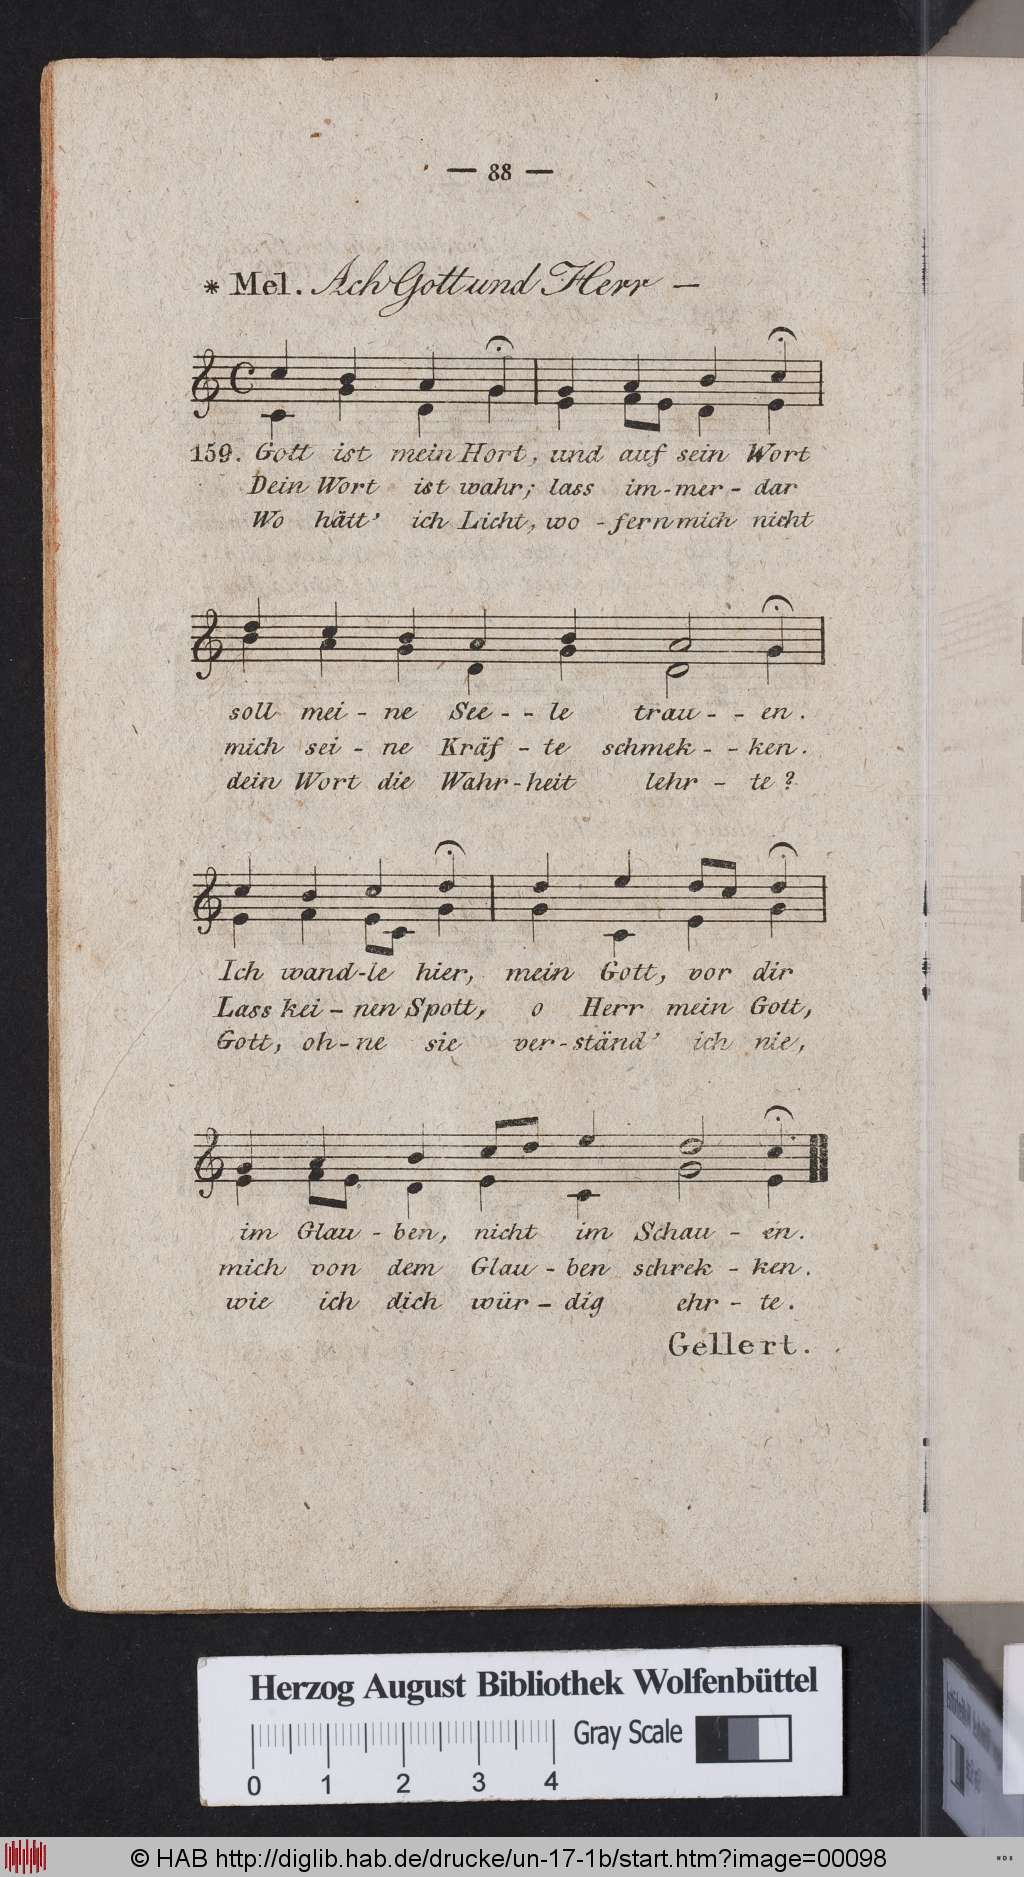 — 88 —
* Mel. Ach Gott und Herr —
159. Gott ist mein Hort, und auf sein Wort
Dein Wort ist wahr; lass im-mer-dar
Wo hätt' ich Licht, wo-fern mich nicht
soll mei-ne See--le trau--en.
mich sei-ne Kräf-te schmek--ken.
dein Wort die Wahr-heit lehr-te?
Ich wand-le hier, mein Gott, vor dir
Lass kei-nen Spott, o Herr mein Gott,
Gott, oh-ne sie ver-ständ' ich nie,
im Glau-ben, nicht im Schau-en.
mich von dem Glau-ben schrek-ken.
wie ich dich wür-dig ehr-te.
Gellert.
Herzog August Bibliothek Wolfenbüttel
Gray Scale
0 1 2 3 4
© HAB http://diglib.hab.de/drucke/un-17-1b/start.htm?image=00098